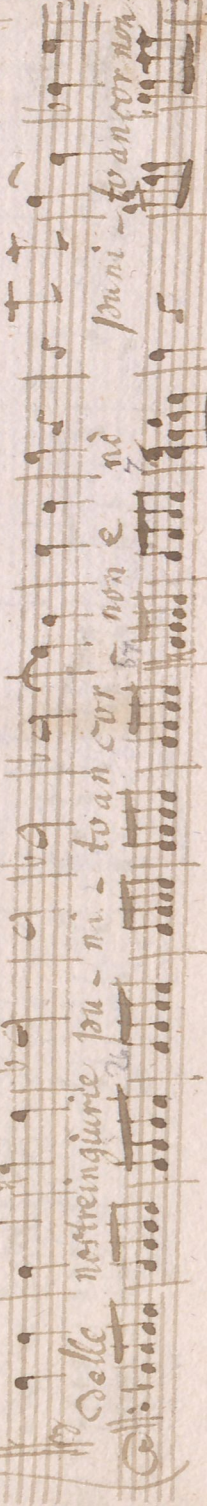 Dalle nostre ingiurie pu - ni - to an cor non e nò puni - to an cor non